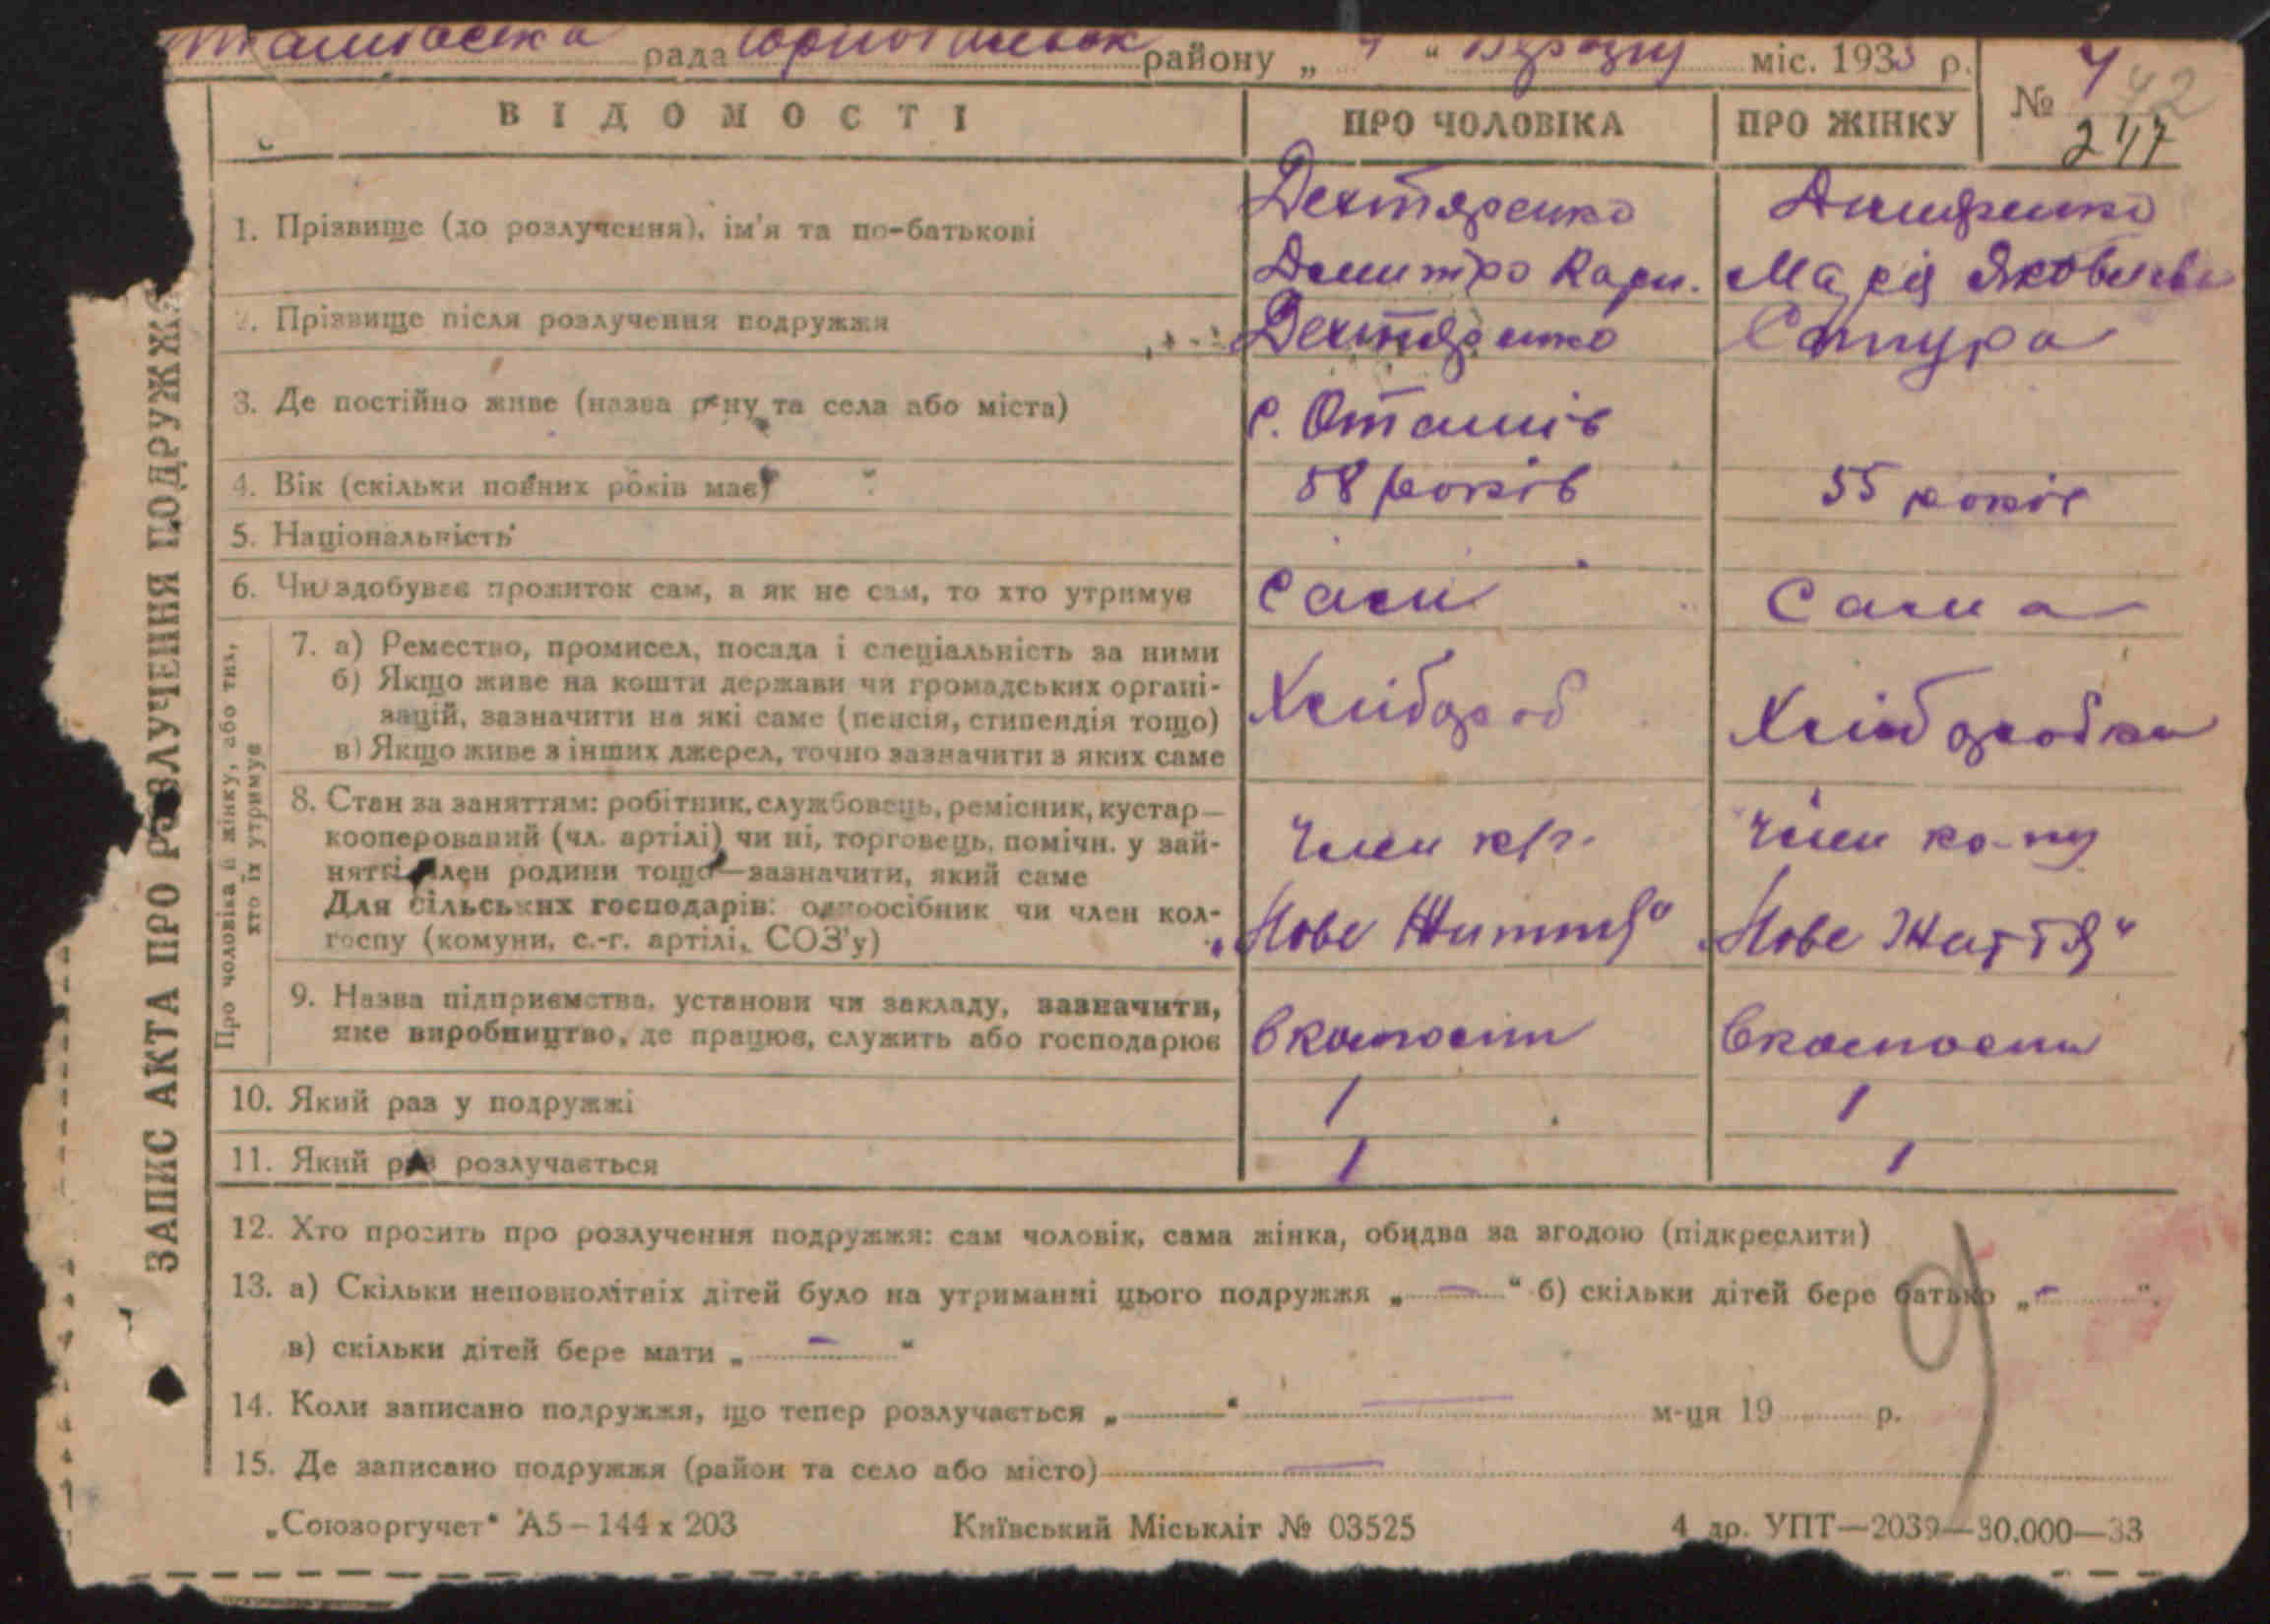 рада району „ 4 “ міс. 1933 р.
№ 4
42
247
ВІДОМОСТІ ПРО ЧОЛОВІКА ПРО ЖІНКУ
ЗАПИС АКТА ПРО РОЗЛУЧЕННЯ ПОДРУЖЖЯ
1. Прізвище (до розлучення), ім'я та по-батькові
Дехтяренко
Дмитро Карп.
Марія Яковлевна
2. Прізвище після розлучення подружжя Дехтяренко Сапура
3. Де постійно живе (назва р-ну та села або міста) с. Оташів
4. Вік (скільки повних років має) 58 років 55 років
5. Національність
6. Чи здобуває прожиток сам, а як не сам, то хто утримує Сам Сама
Про чоловіка й жінку, або тих,
хто їх утримує
7. а) Ремество, промисел, посада і спеціальність за ними
б) Якщо живе на кошти держави чи громадських органі-
зацій, зазначити на які саме (пенсія, стипендія тощо)
в) Якщо живе з інших джерел, точно зазначити з яких саме
Хлібороб Хліборобка
8. Стан за заняттям: робітник, службовець, ремісник, кустар—
кооперований (чл. артілі) чи ні, торговець, помічн. у зай-
нятті член родини тощо—зазначити, який саме
Для сільських господарів: одноосібник чи член кол-
госпу (комуни, с.-г. артілі, СОЗ'у)
Член к/г.
„Нове Життя“
Член ко-пу
„Нове Життя“
9. Назва підприємства, установи чи закладу, зазначити,
яке виробництво, де працює, служить або господарює
в колгоспі в колгоспі
10. Який раз у подружжі 1 1
11. Який раз розлучається 1 1
12. Хто просить про розлучення подружжя: сам чоловік, сама жінка, обидва за згодою (підкреслити)
13. а) Скільки неповнолітніх дітей було на утриманні цього подружжя „ — “ б) скільки дітей бере батько „ — “.
в) скільки дітей бере мати „ — “
14. Коли записано подружжя, що тепер розлучається „ “ — м-ця 19 р.
15. Де записано подружжя (район та село або місто) —
„Союзоргучет“ А5—144 х 203 Київський Міськліт № 03525 4 др. УПТ—2039—30.000—33